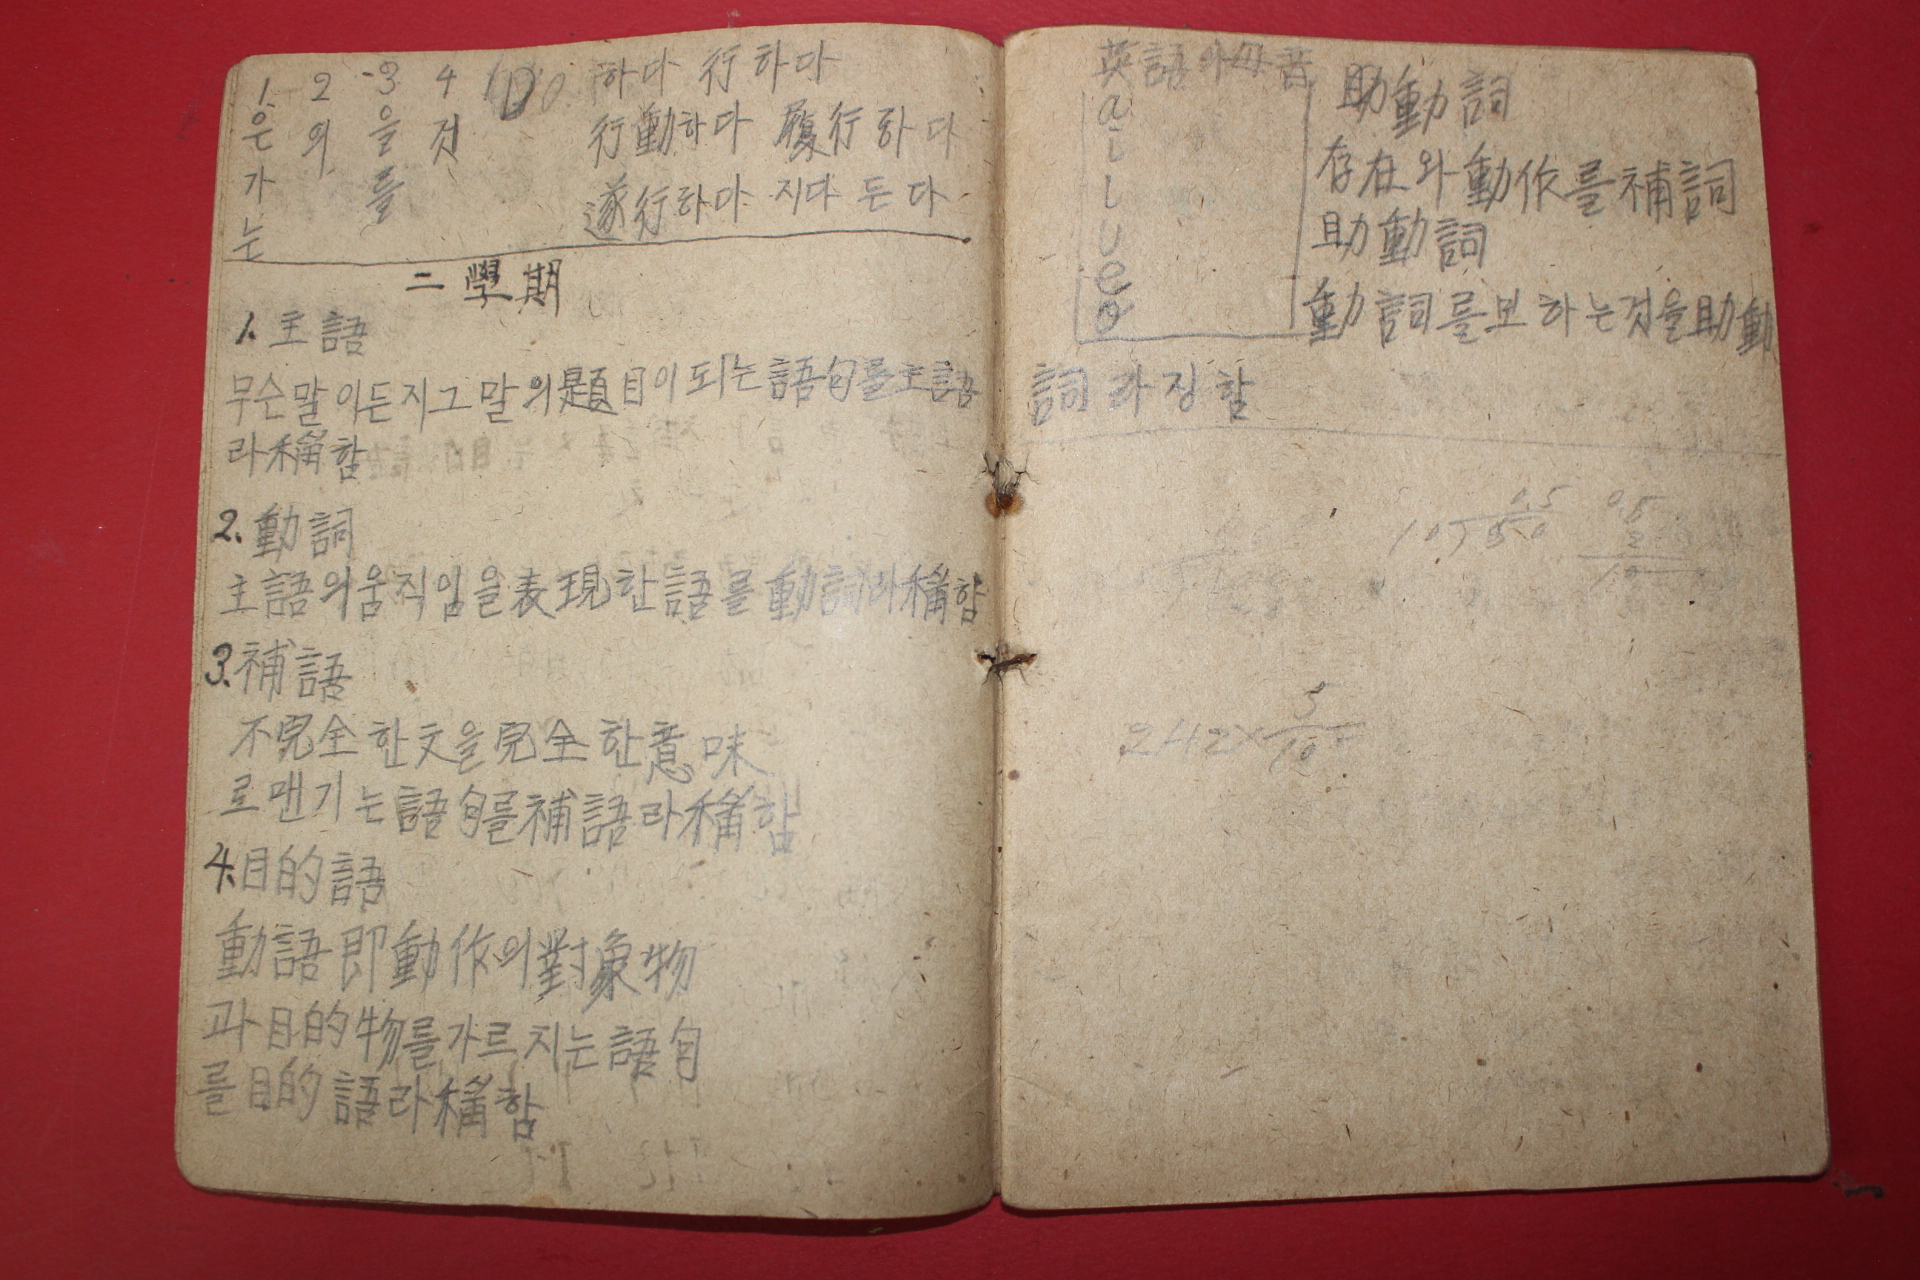 1. 2 3 4
은 의 을 것
가 를
는
하다 行하다
行動하다 履行하다
遂行하다 지다 든다
二學期
1. 主語
무슨말이든지그말의題目이되는語句를主語
라稱함
2. 動詞
主語의움직임을表現한語를動詞라稱함
3. 補語
不完全한文을完全한意味
로맨기는語句를補語라稱함
4. 目的語
動語即動作의對象物
과目的物를가르치는語句
를目的語라稱함
英語의母音
a
i
u
e
o
助動詞
存在와動作를補詞
助動詞
動詞를보하는것을助動
詞라징함
0.5
10)5.0
0.5
242×5/10